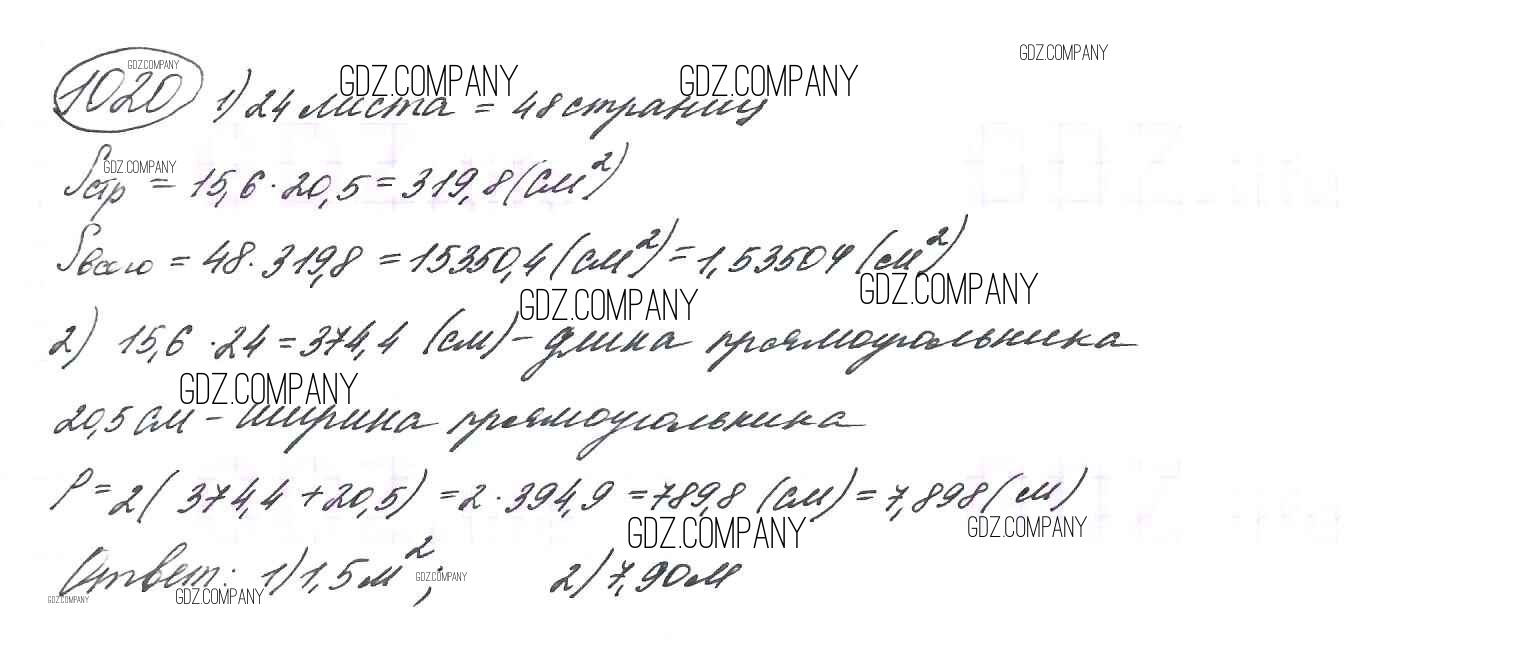 1020 1) 24 листа = 48 страниц
Sстр = 15,6 · 20,5 = 319,8 (см²)
Sвсего = 48 · 319,8 = 15350,4 (см²) = 1,53504 (см²)
2) 15,6 · 24 = 374,4 (см) – длина прямоугольника
20,5 см – ширина прямоугольника
P = 2( 374,4 + 20,5) = 2 · 394,9 = 789,8 (см) = 7,898 (м)
Ответ: 1) 1,5 м²; 2) 7,90 м
GDZ.COMPANY
GDZ.COMPANY
GDZ.COMPANY
GDZ.COMPANY
GDZ.COMPANY
GDZ.COMPANY
GDZ.COMPANY
GDZ.COMPANY
GDZ.COMPANY
GDZ.COMPANY
GDZ.COMPANY
GDZ.COMPANY
GDZ.COMPANY